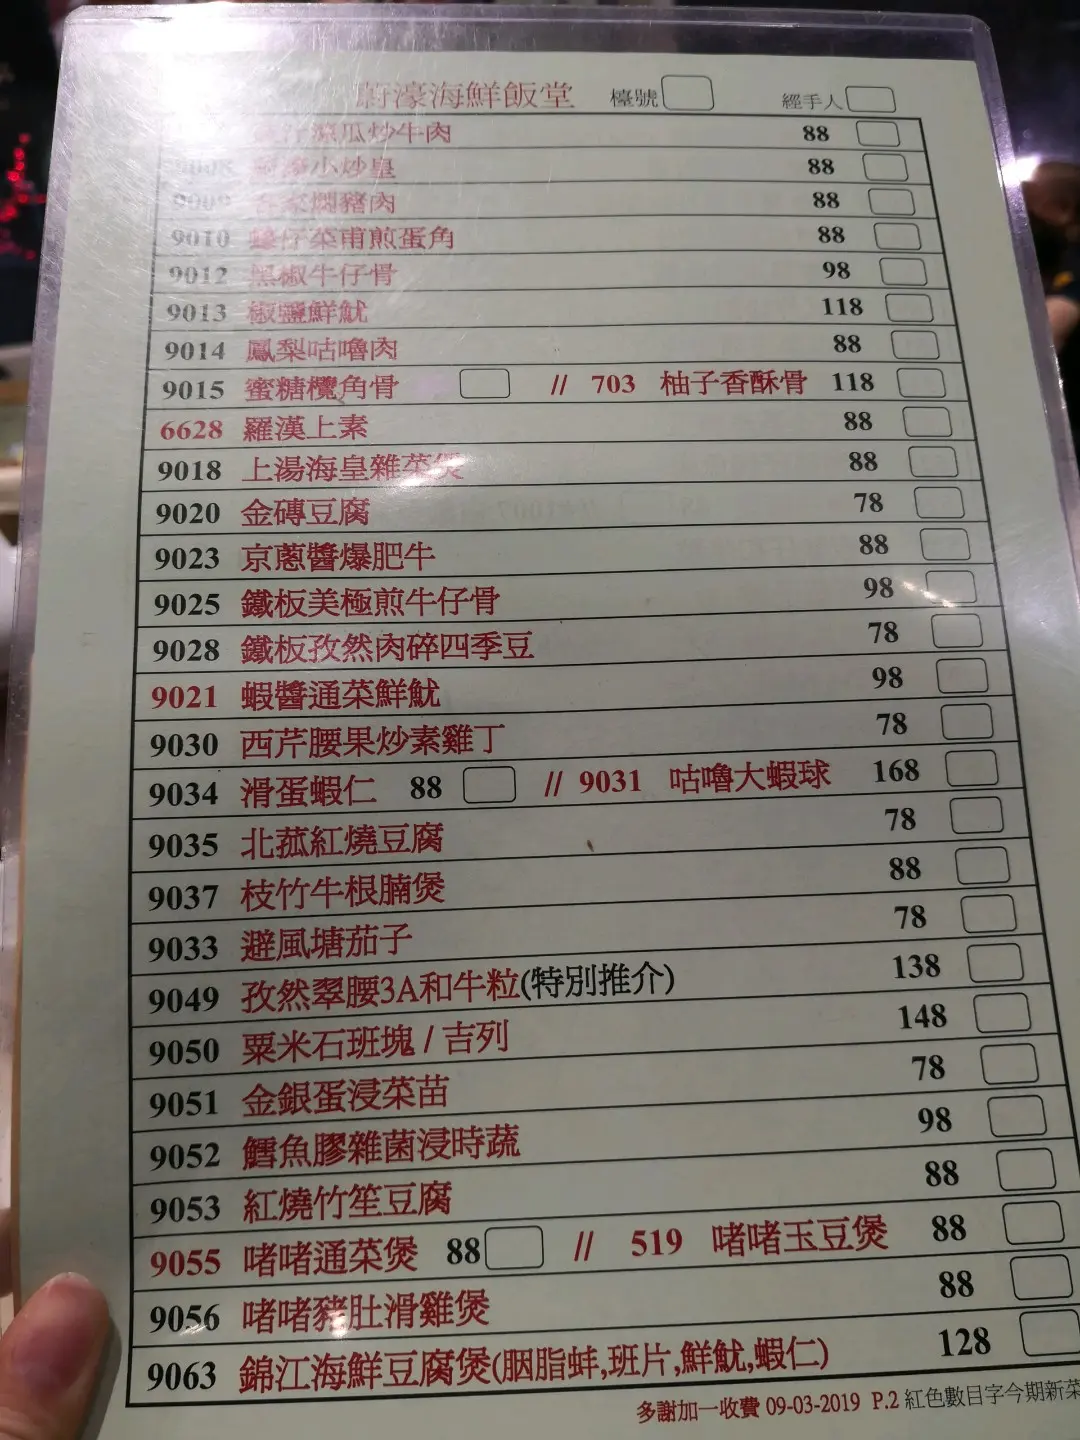 濠海鮮飯堂 檯號 經手人
瓜炒牛肉 88
9008 小炒皇 88
9009 客家燜豬肉 88
9010 蠔仔菜甫煎蛋角 88
9012 黑椒牛仔骨 98
9013 椒鹽鮮魷 118
9014 鳳梨咕嚕肉 88
9015 蜜糖欖角骨 // 703 柚子香酥骨 118
6628 羅漢上素 88
9018 上湯海皇雜菜煲 88
9020 金磚豆腐 78
9023 京蔥醬爆肥牛 88
9025 鐵板美極煎牛仔骨 98
9028 鐵板孜然肉碎四季豆 78
9021 蝦醬通菜鮮魷 98
9030 西芹腰果炒素雞丁 78
9034 滑蛋蝦仁 88 // 9031 咕嚕大蝦球 168
9035 北菰紅燒豆腐 78
9037 枝竹牛根腩煲 88
9033 避風塘茄子 78
9049 孜然翠腰3A和牛粒(特別推介) 138
9050 粟米石班塊 / 吉列 148
9051 金銀蛋浸菜苗 78
9052 鱈魚膠雜菌浸時蔬 98
9053 紅燒竹笙豆腐 88
9055 啫啫通菜煲 88 // 519 啫啫玉豆煲 88
9056 啫啫豬肚滑雞煲 88
9063 錦江海鮮豆腐煲(胭脂蚌,班片,鮮魷,蝦仁) 128
多謝加一收費 09-03-2019 P.2 紅色數目字今期新菜